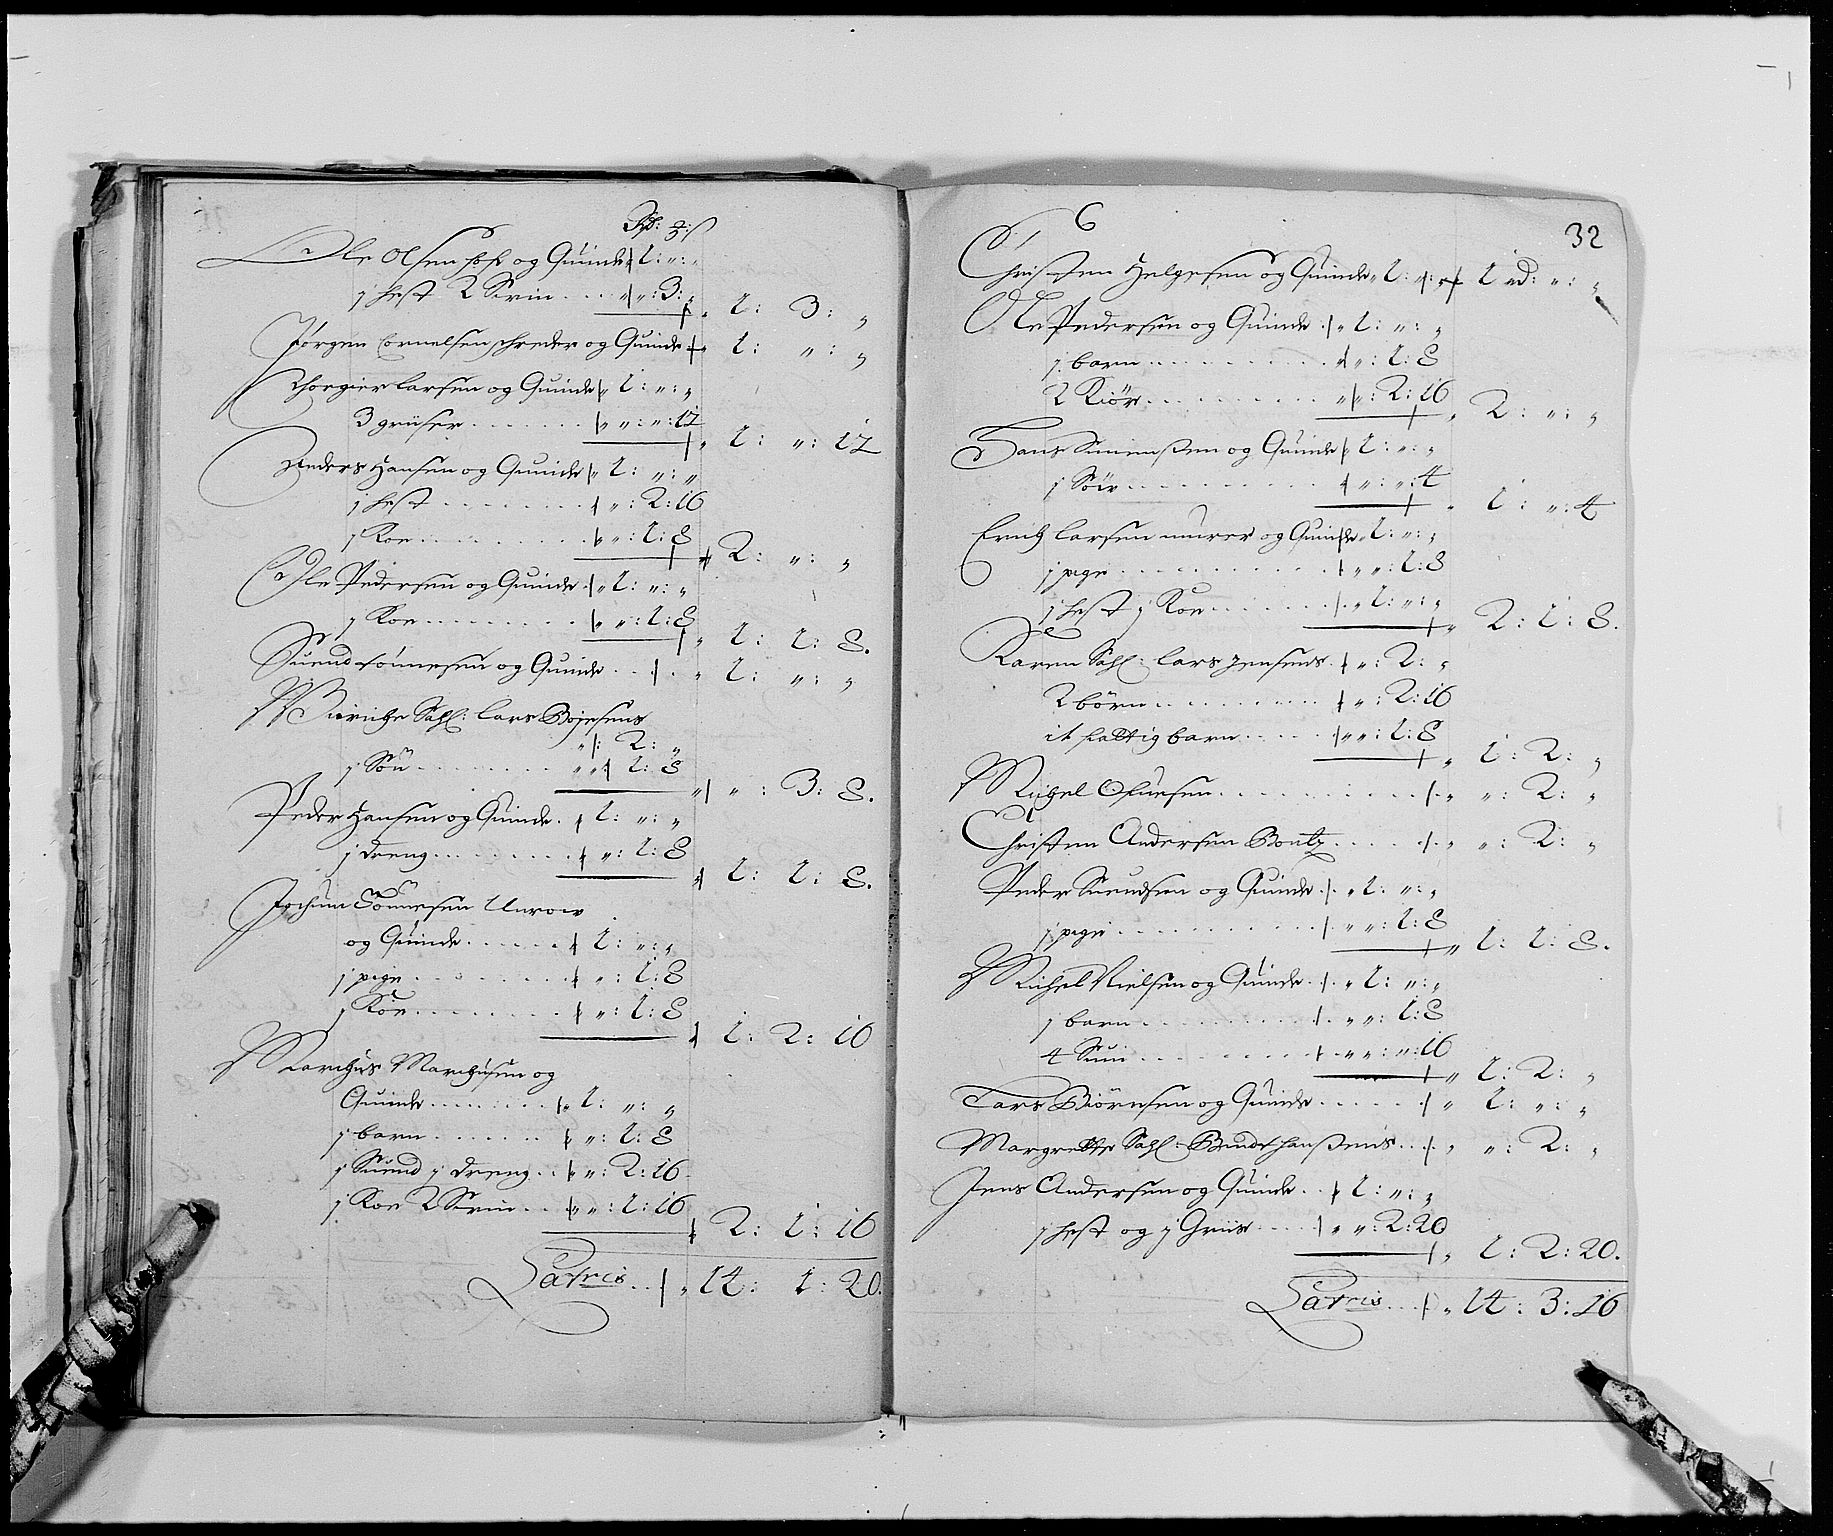 Rd: ꝸ: ß
Ole Olsen hofs og Quinde 1: „: „
j hest 2 Svin .... „: 3: „ 1: 3: „
Jørgen Cornelsen schreder og Quinde 1: „: „
Thorgier Larsen og Quinde 1: „: „
3 griiser ....... „: „: 12 1: „: 12
Anders Hansen og Quinde 1: „: „
j hest ........ „: 2: 16
j Koe ......... „: 1: 8 2: „: „
Ole Pedersen og Quinde 1: „: „
j Koe ........ „: 1: 8 1: 1: 8.
Suend tönnesen og Quinde .. 1: „: „
Sahl: Lars Bojesens
„: 2: „
j Sön ........ „: 1: 8 „: 3: 8.
Peder Hansen og Quinde . 1: „: „
j dreng ........ „: 1: 8 1: 1: 8.
Jochum Tönnesen
og Quinde ...... 1: „: „
j pige ........ „: 1: 8
j Koe ........ „: 1: 8 1: 2: 16
Marchus Marchusen og
Quinde ........ 1: „: „
j barn ....... „: 1: 8
j Suend j dreng .. „: 2: 16
j Koe 2 Svin .. „: 1: 16 2: 1: 16
Latris .. 14: 1: 20.
6
32
Christen Helgesen og Quinde 1: „: „ 1 „: „
Ole Pedersen og Quinde 1: „: „
j barn ......... „: 1: 8
2 Kiör ......... „: 2: 16 2: „: „
Hans Simensen og Quinde 1: „: „
j Söir ......... „: „: 4 1: „: 4
Erich Larsen murer og Quinde 1: „: „
j pige ......... „: 1: 8
j hest j Koe ...... 1: „: „ 2: 1: 8.
Karen Sahl: Lars Jensens „: 2: „
2 börn ......... „: 2: 16
it fattig barn ..... „: 1: 8 1: 2: „
Michel Olufsen ......... „: 2: „
Christen Andersen Bontz .... „: 2: „
Peder Suendsen og Quinde 1: „: „
j pige ......... „: 1: 8 1: 1: 8.
Michel Nielsen og Quinde 1: „: „
j barn ......... „: 1: 8
4 Suin ......... „: „: 16 1: 2: „
Lars Biörnsen og Quinde ..... 1: „: „
Margrette Sahl: Bendt hanßens .. „: 2: „
Jens Andersen og Quinde .. 1: „: „
j hest og j Griis .... „: 2: 20 1: 2: 20.
Latris ... 14: 3: 16